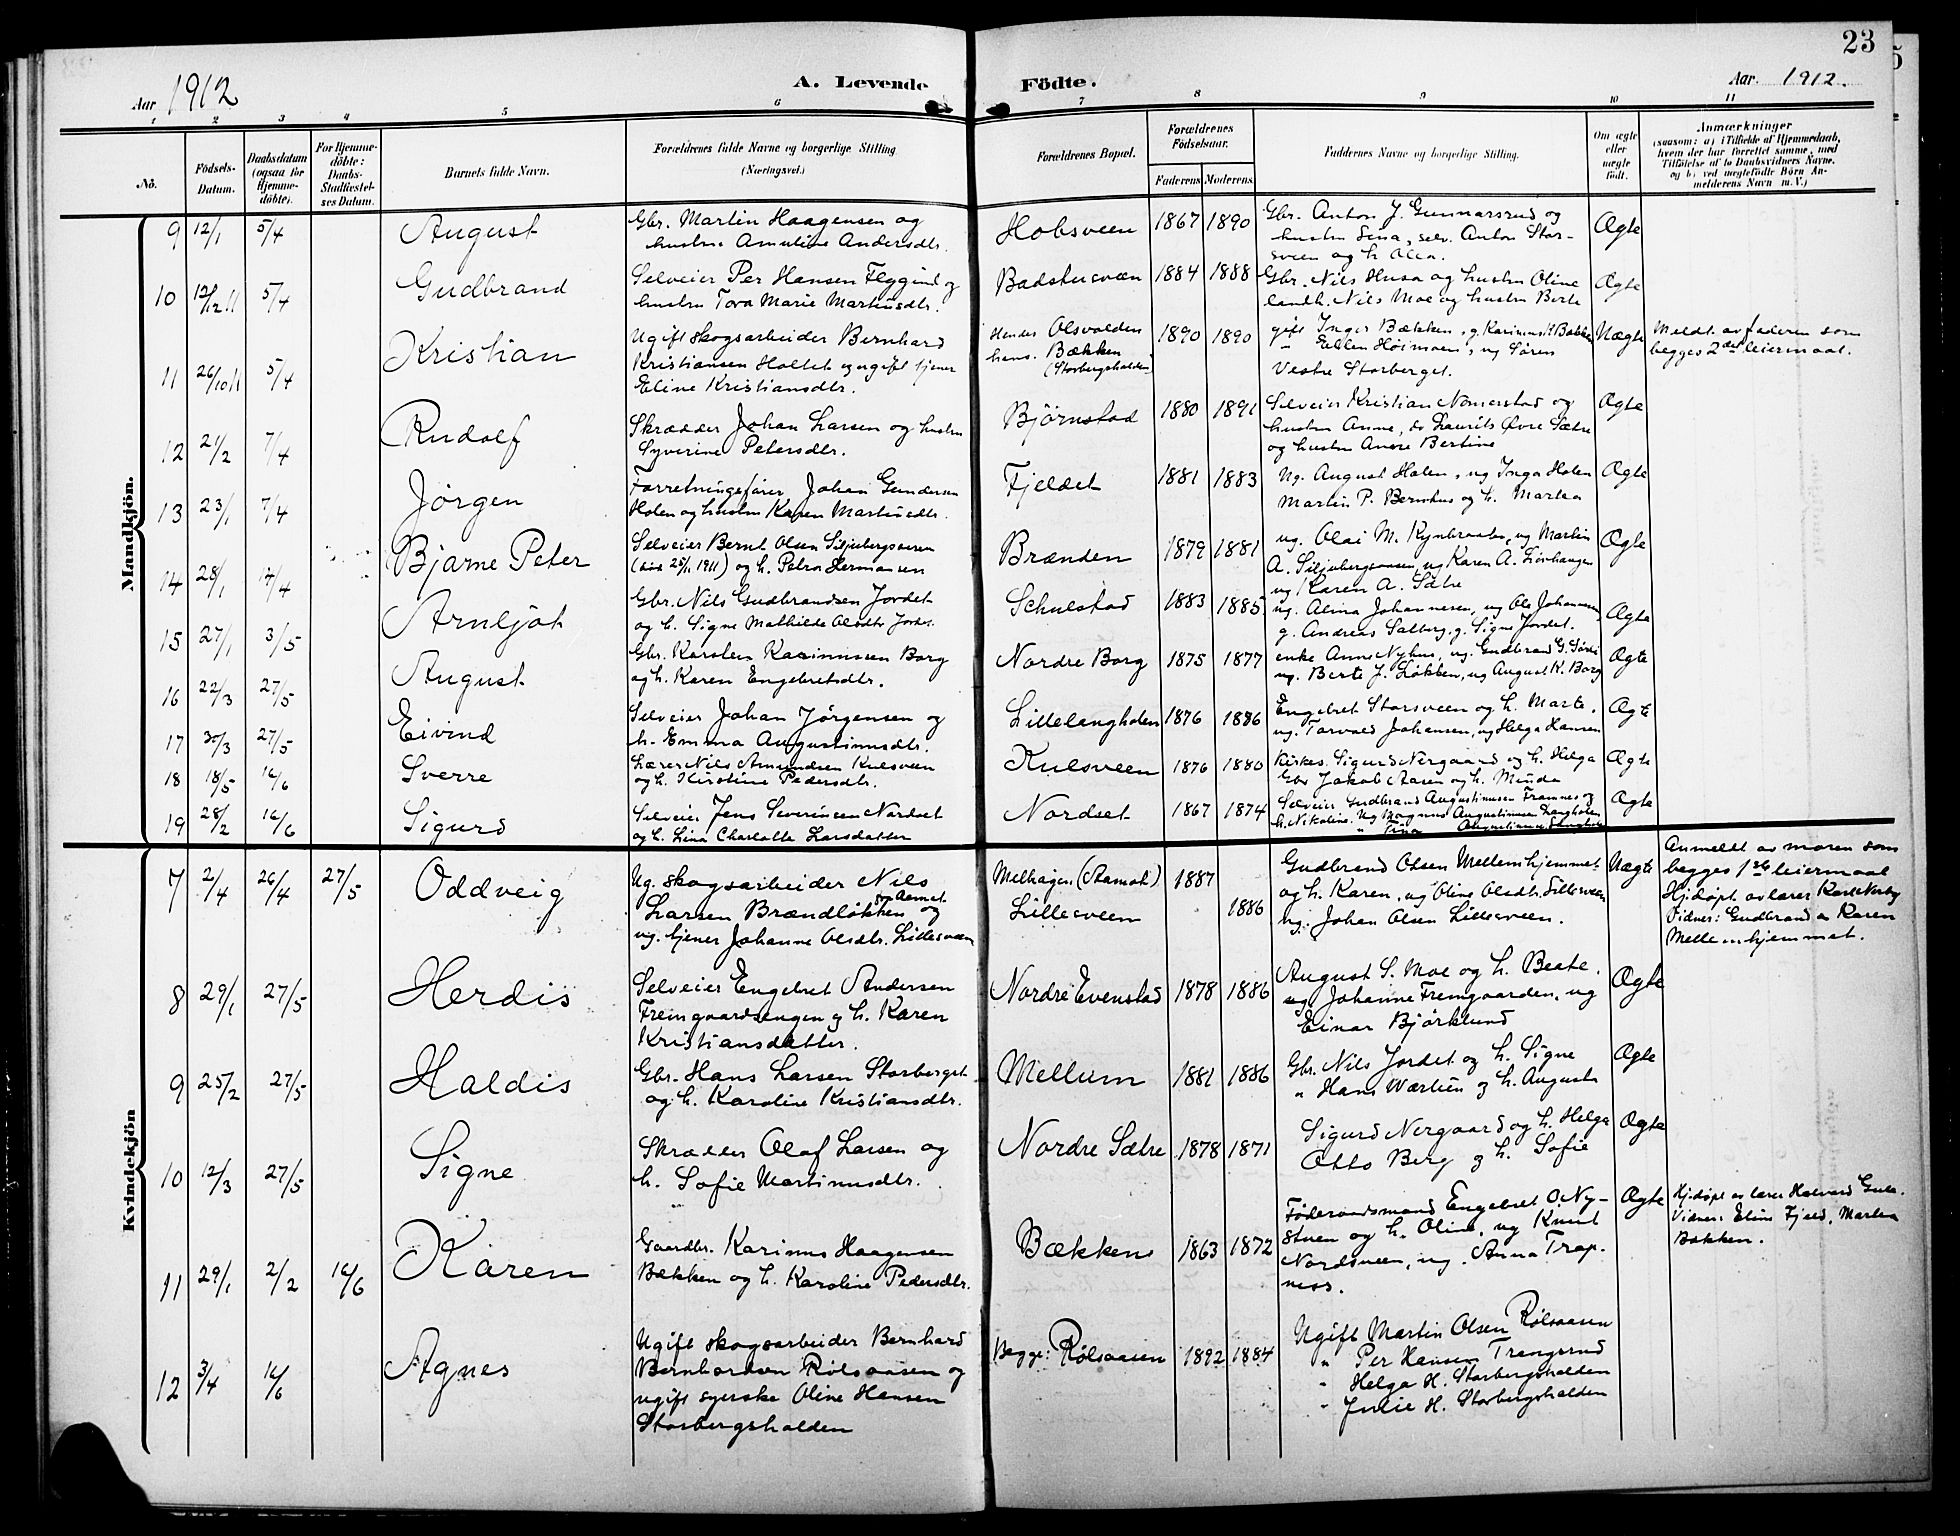 23
Aar 1912
A. Levende Födte.
Aar. 1912.
1 2 3 4 5 6 7 8 9 10 11
No.
Födsels-
Datum.
Daabsdatum
(ogsaa for
Hjemme-
döbte).
For Hjemme-
döbte:
Daabs-
Stadfæstel-
ses Datum.
Barnets fulde Navn.
Forældrenes fulde Navne og borgerlige Stilling
(Næringsvei.)
Forældrenes Bopæl.
Forældrenes
Födselsaar.
Faderens Moderens
Faddernes Navne og borgerlige Stilling.
Om ægte
eller
uægte
födt.
Anmærkninger
(saasom: a) i Tilfælde af Hjemmedaab,
hvem der har forrettet samme, med
Tilföielse af to Daabsvidners Navne,
og b) ved uægtefödte Börn An-
melderens Navn m. V.)
Mandkjön.
9 12/1 5/4 August
Gbr. Martin Haagensen og
hustru Amutine Andersdtr.
Hobsveen 1867 1890
Gbr. Anton J. Gunnarsrud og
hustru Lina, selv. Anton Stor-
sveen og h.
Ægte
10 12/12.11 5/4 Gudbrand
Selveier Per Hansen Flygind og
hustru Tora Marie Martinsdtr.
Badstusveen 1884 1888
Gbr. Nils Husa og hustru Oline
landh. Nils Moe og hustru Berte
Ægte
11 26/10 11 5/4 Kristian
Ugift skogsarbeider Bernhard
Kristiansen Holtet og ugift tjener
Eline Kristiansdtr.
Hendes Olsvolden
hans. Bækken
(Storbergshalden)
1890 1890
gift Inger Bækken, g. Bakken
" Ellen Høimoen, ug Søren
Vestre Storberget.
Uægte
Meldt av faderen som
begges 2det leiermaal.
12 21/2 7/4 Rudolf
Skrædder Johan Larsen og hustru
Syverine Petersdtr.
Björnstad 1880 1891
Selveier Kristian Nomerstad og
hustru Anne, do Laurits Øvre Sætre
og hustru Andre Bertine
Ægte
13 23/1 7/4 Jörgen
Forretningsfører Johan Gundersen
Holen og hustru Karen Martinsdtr.
Fjeldet 1881 1883
Ug. August Holen, ug Inga Holen
Martin P. Bernhus og h. Martea
Ægte
14 28/1 14/4 Bjarne Peter
Selveier Bernt Olsen Siljubergsveen
(død 25/1 1911) og h. Petra Hermansen
Brænden 1879 1881
ug. Olai M. Kynbraaten, ug Martin
A. Siljubergsveen, ug Karen A. Lövhaugen
ug Karen A. Sætre
Ægte
15 27/1 3/5 Arnljot
Gbr. Nils Gudbrandsen Jordet
og h. Signe Mathilde Olsdtr Jordet.
Schulstad 1883 1885
ug. Alma Johannesen, ug Ole Johannesen,
g. Andreas Salberg, g. Signe Jordet.
Ægte
16 22/3 27/5 August
Gbr. Karsten Karinussen Borg
og h. Karen Engebretsdtr.
Nordre Borg 1875 1877
enke Anne Nyhus, ug. Gudbrand G.
ug. Berte J. Løkken, ug August K. Borg
Ægte
17 30/3 27/5 Eivind
Selveier Johan Jørgensen og
h. Emma Augustinusdtr.
Lillelangholen 1876 1886
Engebret Storsveen og h. Marte.
ug. Torvald Johansen, ug Helga Hansen
Ægte
18 18/5 16/6 Sverre
Lærer Nils Amundsen Kulsveen
og h. Kirstine Pedersdtr.
Kulsveen 1876 1880
Kirkes. Sigurd Nergaard og h. Helga
Gbr Jakob Aasen og h. Minda
Ægte
19 28/2 16/6 Sigurd
Selveier Jens Severinsen Nordset
og h. Lina Charlotte Larsdatter
Nordset 1867 1874
Selveier Gudbrand Augustinusen Framnes og
h. Nikoline. Ug Magnus Augustinusen Langholen
" Tina Augustinusen Langholen
Ægte
Kvindekjön
7 2/4 26/4 27/5 Oddveig
Ug. skogsarbeider Nils
Larsen Brændløkken fra Aamot og
ug. tjener Johanne Olsdtr. Lillesveen
Melhagen (Aamot) 1887
Lillesveen 1886
Gudbrand Olsen Mellemhjemmet
og h. Karen, ug Oline Olsdtr. Lillesveen
ug. Johan Olsen Lillesveen.
Uægte
Anmeldt av moren som
begges 1ste leiermaal
Hjdøpt av lærer Karl Nerby
Vidner: Gudbrand og Karen
Mellemhjemmet.
8 29/1 27/5 Herdis
Selveier Engebret Andersen
Fremgaardsengen og h. Karen
Kristiansdatter.
Nordre Evenstad 1878 1886
August S. Moe og h. Beate.
ug Johanne Fremgaarden, ug
Einar Björklund
Ægte
9 25/2 27/5 Haldis
Gbr. Hans Larsen Storberget
og h. Karoline Kristiansdtr.
Mellum 1881 1886
Gbr. Nils Jordet og h. Signe
" Hans Wærlien og h. Augusta
Ægte
10 12/3 27/5 Signe
Skrædder Olaf Larsen og
h. Sofie Martinusdtr.
Nordre Sætre 1878 1871
Sigurd Nergaard og h. Helga
Otto Berg og h. Sofie
Ægte
11 29/1 2/2 16/6 Karen
Gaardbr. Karinus Haagensen
Bækken og h. Karoline Pedersdtr.
Bækken 1863 1872
Føderaadsmand Engebret O. Ny-
stuen og h. Oline, ug Knut
Nordsveen, ug. Anna Trap-
ness.
Ægte
Hjdøpt av lærer Halvard Gule.
Vidner: Elins Fjeld, Martea
Bakken.
12 3/4 16/6 Agnes
Ugift skogsarbeider Bernhard
Bernhardsen Rølsaasen og
ugift syerske Oline Hansen
Storbergshalden
Begge: Rølsaasen 1892 1884
Ugift Martin Olsen Rølsaasen
" Per Hansen Trangsrud
" Helga H. Storbergshalden
" Julie H. Storbergshalden